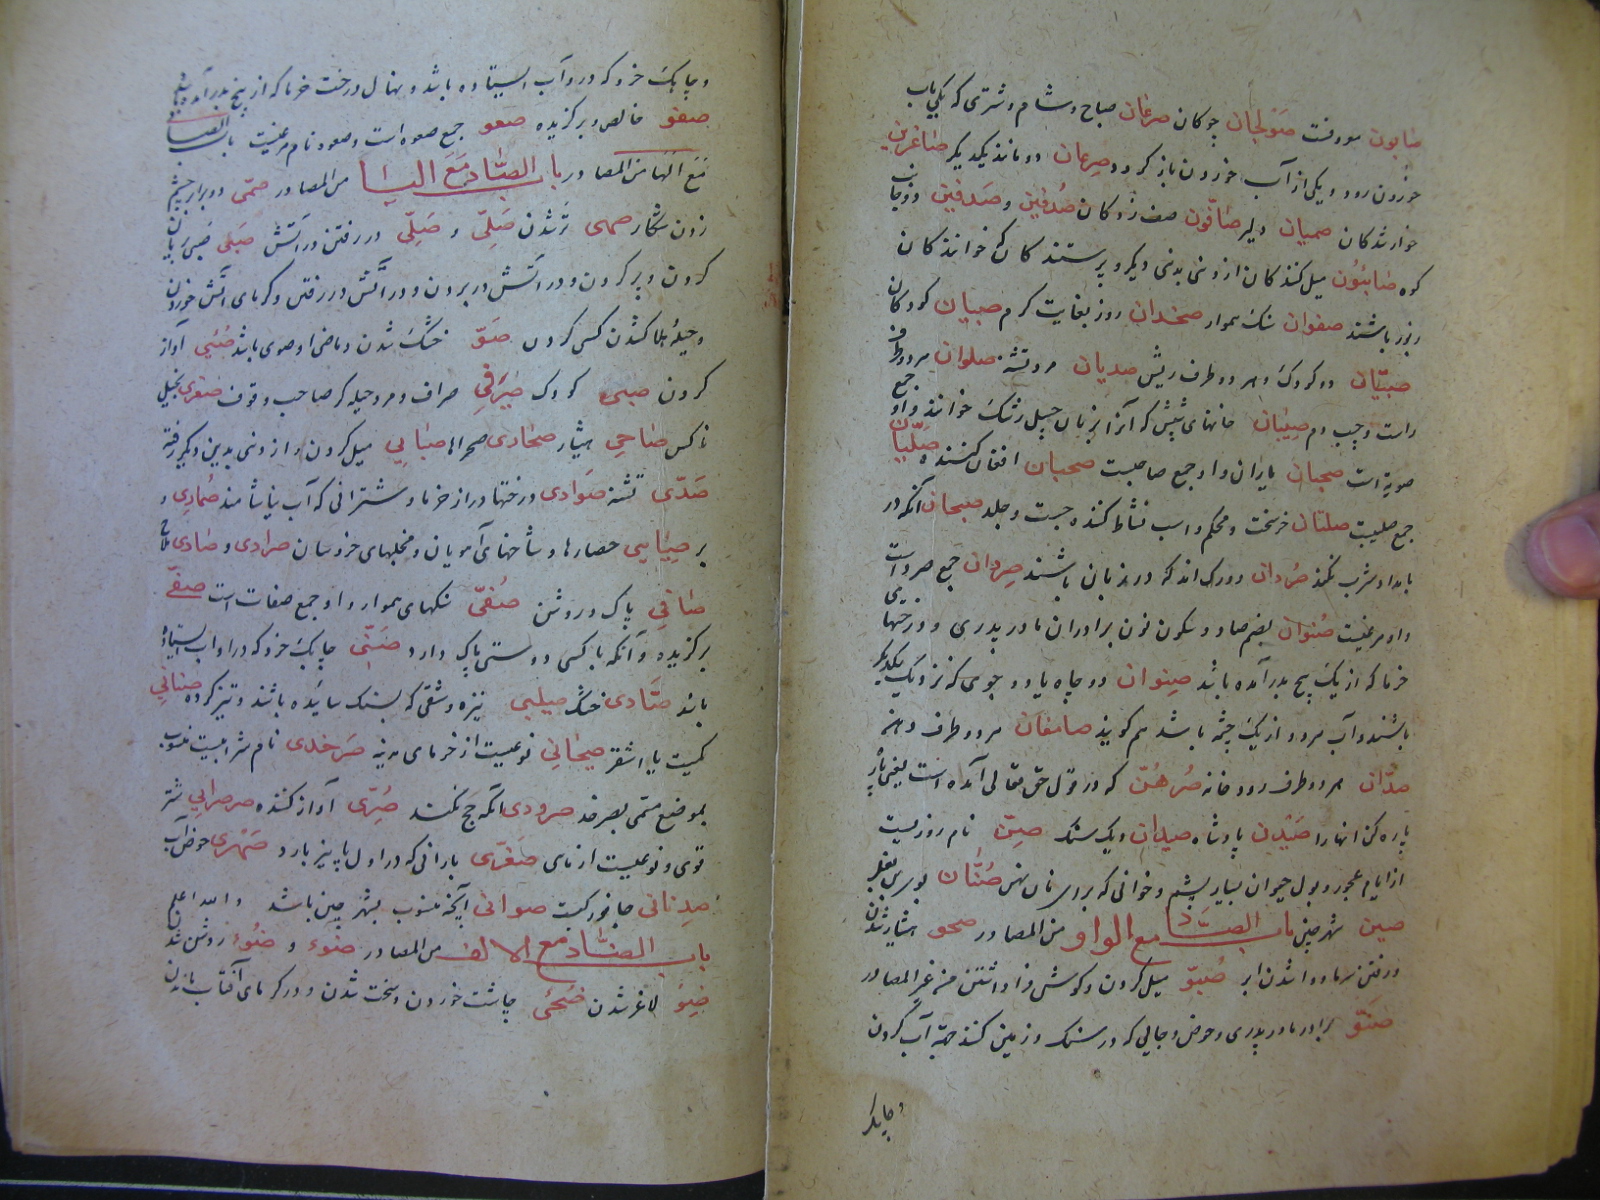 صابون معروفت صولجان چوکان صرعان صباح و شام و شتری که یکی باب
خوردن رود و یکی از آب خوردن باز کردد صرعان دو مانند یکدیکر صاغرین
خوارشدکان صمیان دلیر صافّون صف زدکان صُدفین و صَدفین دو جانب
کوه صابئون میل کنندکان از دینی بدینی دیکر و پرستندکان خوانندکان
زبور باشند صفوان سنک هموار صخدان روز بغایت کرم صبیان کودکان
صبیّان دو کودک و هر دو طرف ریش صدیان مرد تشنه صلوان هر دو طرف
راست و چپ دم صیبان خانهای شپش که آنرا بزبان چپل رشک خوانند و او جمع
صوبة است صحبان یاران و او جمع صاحبست صخبان افغان کننده صلبان
جمع صلیبت صلتان خر سخت و محکم و اسب نشاط کننده جست و جلد صبحان آنکه در
بامداد شرب کند صُردان دو رک اند که در زبان باشند صِردان جمع صرد است
و او مرغیست صُنوان بضم صاد و سکون نون برادران مادر پدری و درختهای
خرما که از یک بیخ بدر آمده باشد صِنوان دو چاه یا دو جوی که نزدیک یکدیکر
باشند و آب هر دو از یک چشمه باشد هم کویند صامغان هر دو طرف دهن
صدّان هر دو طرف رودخانه صُرهُنّ که در قول حق تعالی آمده است یعنی پاره
پاره کن انها را صَیْدن پادشاه صیدان دیک سنک صِنّ نام روزیست
از ایام عجوز و بول حیوان بسیار پشم و خوانی که بر او نان نهند صُنان بوی بن بغل
صین شهر چین باب الصّاد مع الواو من المصادر صحو هشیار شدن
و رفتن سرما و وا شدن ابر صُبوّ میل کردن و کوش فرا داشتن من غیر المصادر
صَنو برادر مادر پدری و حوض و جایی که در سنک و زمین کنند جهة آب کردن
و چابک
و چابک خر و که در و آب ایستاده باشد و نهال درخت خرما که از بیخ بدر آمده باشد
صفو خالص و برکزیده صعو جمع صعوه است و صعوه نام مرغیست باب الصاد
مَعَ الهَا من المصادر باب الصّاد مَعَ الیا من المصادر صمّی دویدار چشم
زدن شکار صهی تر شدن صَلِیّ و صُلِیّ در رفتن در آتش صَلی صبی بریان
کردن و پر کردن و در آتش در بردن و در آتش در رفتن و کرمای آتش خوردن
و حیله هلاک شدن کسی کردن صَوّ خشک شدن و ماضی او صوی باشد صُئِی آواز
کردن صبی کودک صَیرَفی صراف و مرد حیله کر صاحب وقوف صنعری بخیل
ناکس صاحی هشیار صحاری صحراها صابی میل کردن و از دینی بدین دیکر رفته
صَدی تشنه صوادی درختها دراز خرما و شترانی که آب نیاشامند صُمادی و
بر صیاصی حصارها و شاخهای آهویان و مخلبهای خروسان صراری و صاری ملاح
صافی پاک و روشن صُفی سنکهای هموار و او جمع صفات است صفی
برکزیده و آنکه با کسی دوستی پاک دارد صَنّی چابک خر و که در او اب ایستاده
باشد صاری خشک صیلبی نیزه و شقی که بسنک ساییده باشند و تیز کرده صنابی
کمیت یا اشقر صیحانی نوعیست از خرمای مدینه صرخدی نام شرابیست منسوب
بموضع مسمّی بصرخد صروری آنکه حج نکند صُرّی آواز کننده صرصرانی شتر
قوی و نوعیست از ماهی صَفَری بارانی که در اول پاییز بارد صَهْری حوض آب
صدنانی جانور کیست صوانی آنچه منسوب بشهر چین باشد و الله اعلم
باب الصّاد مع الالف من المصادر ضوء و ضُوء روشن شدن
ضِوی لاغر شدن ضُحی چاشت خوردن و سخت شدن و در کرمای آفتاب ماندن